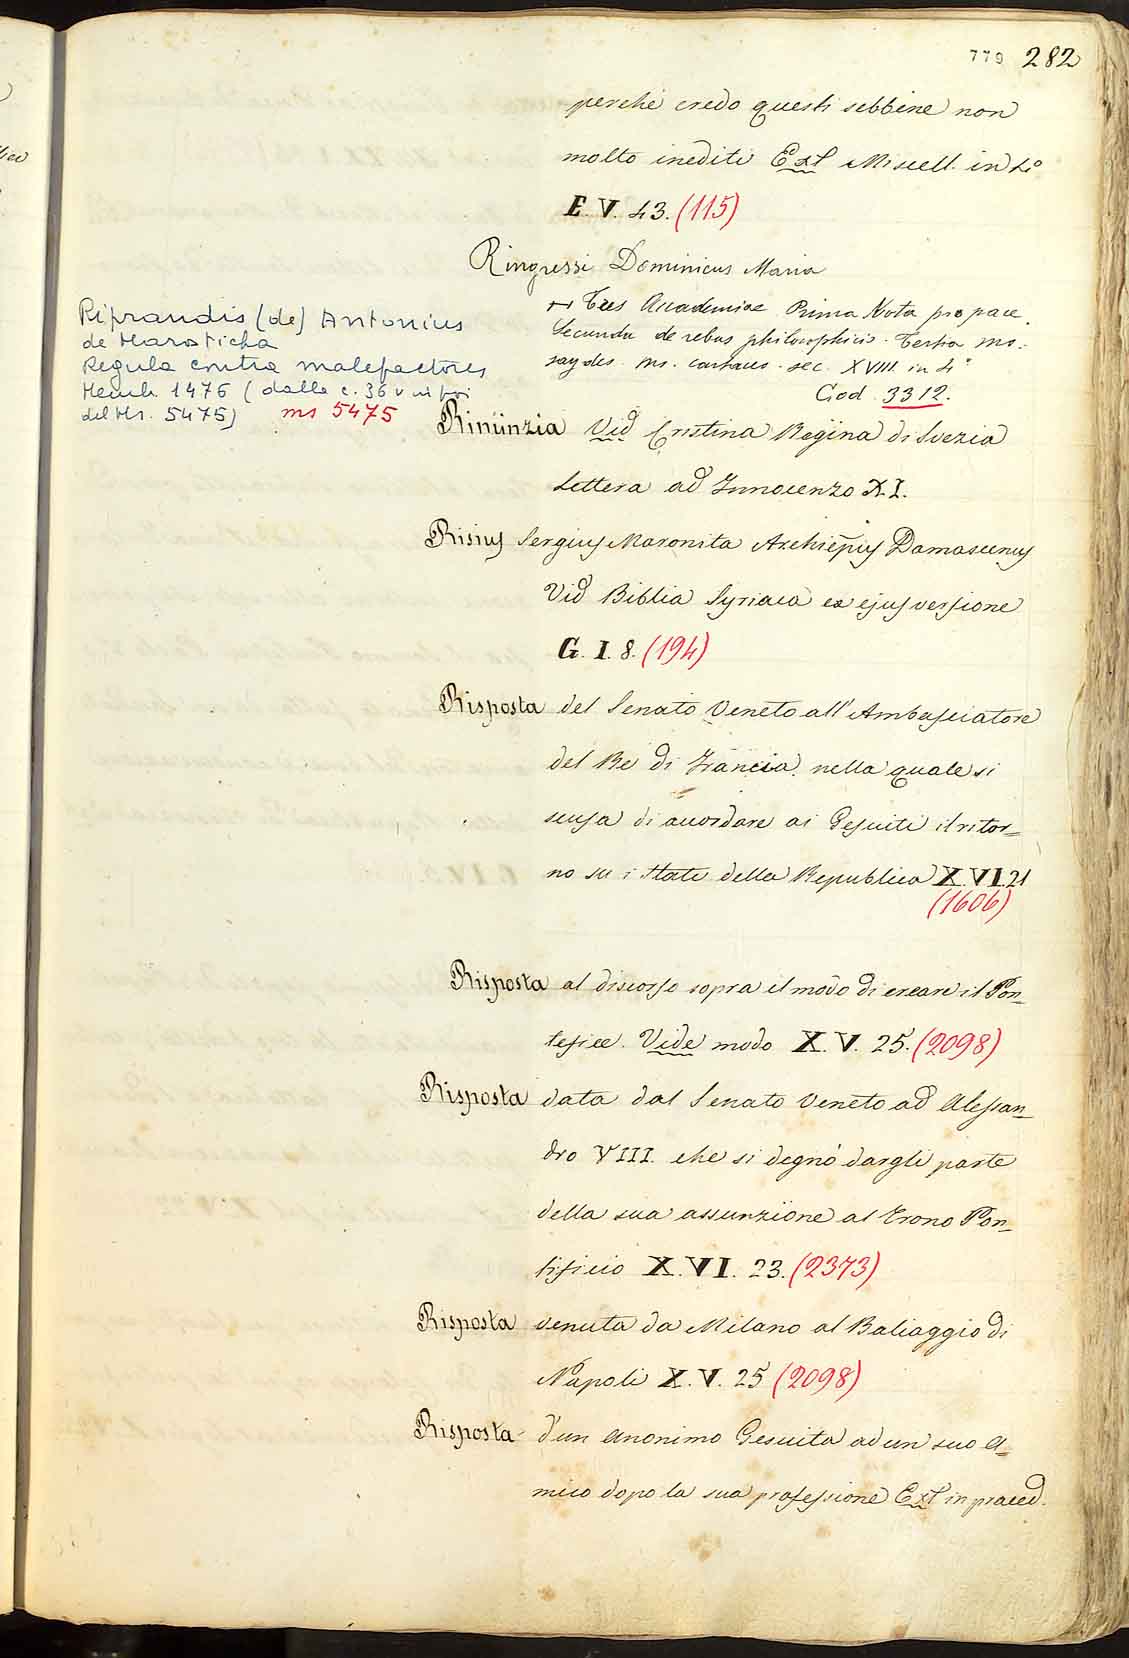 779 282
perchè credo questi sebbene non
molto inediti Ext Miscell. in 4º
E. V. 43. (115)
Ringressi Dominicus Maria
Tres Academiae Prima Nota pro pace.
Secunda de rebus philosophicis. Tertia
ms. cartaceus. sec. XVIII. in 4º
Cod. 3312.
Riprandis (de) Antonius
de Marosticha
Regula contra malefactores
Memb. 1476 (dalla c. 36 v in poi
del Ms. 5475) ms 5475
Rinunzia Vid Cristina Regina di Svezia
Lettera ad Innocenzo XI.
Risius Sergius Maronita Archiep̃us Damascenus
Vid Biblia Syriaca ex ejus versione
G. I. 8. (194)
Risposta del Senato Veneto all'Ambasciatore
del Re di Francia nella quale si
scusa di accordare ai Gesuiti il ritor=
no su i Stati della Republica X.VI.21
(1606)
Risposta al discorso sopra il modo di creare il Pon=
tefice. Vide modo X. V. 25. (2098)
Risposta data dal Senato Veneto ad Alessan=
dro VIII. che si degnò dargli parte
della sua assunzione al Trono Pon=
tificio X. VI. 23. (2373)
Risposta venuta da Milano al Baliaggio di
Napoli X. V. 25 (2098)
Risposta d'un anonimo Gesuita ad un suo A=
mico dopo la sua professione Ext in praced.